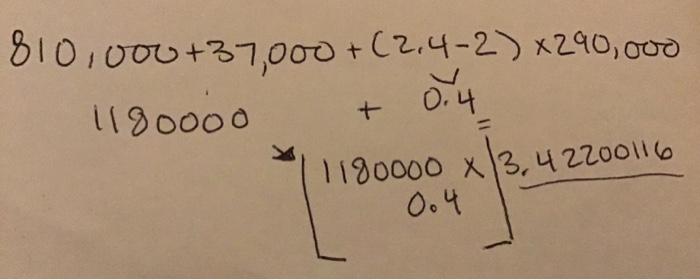 810,000+37,000 + (2.4-2) x290,000
1180000 + 0.4
=
1180000 x 3.42200116
0.4